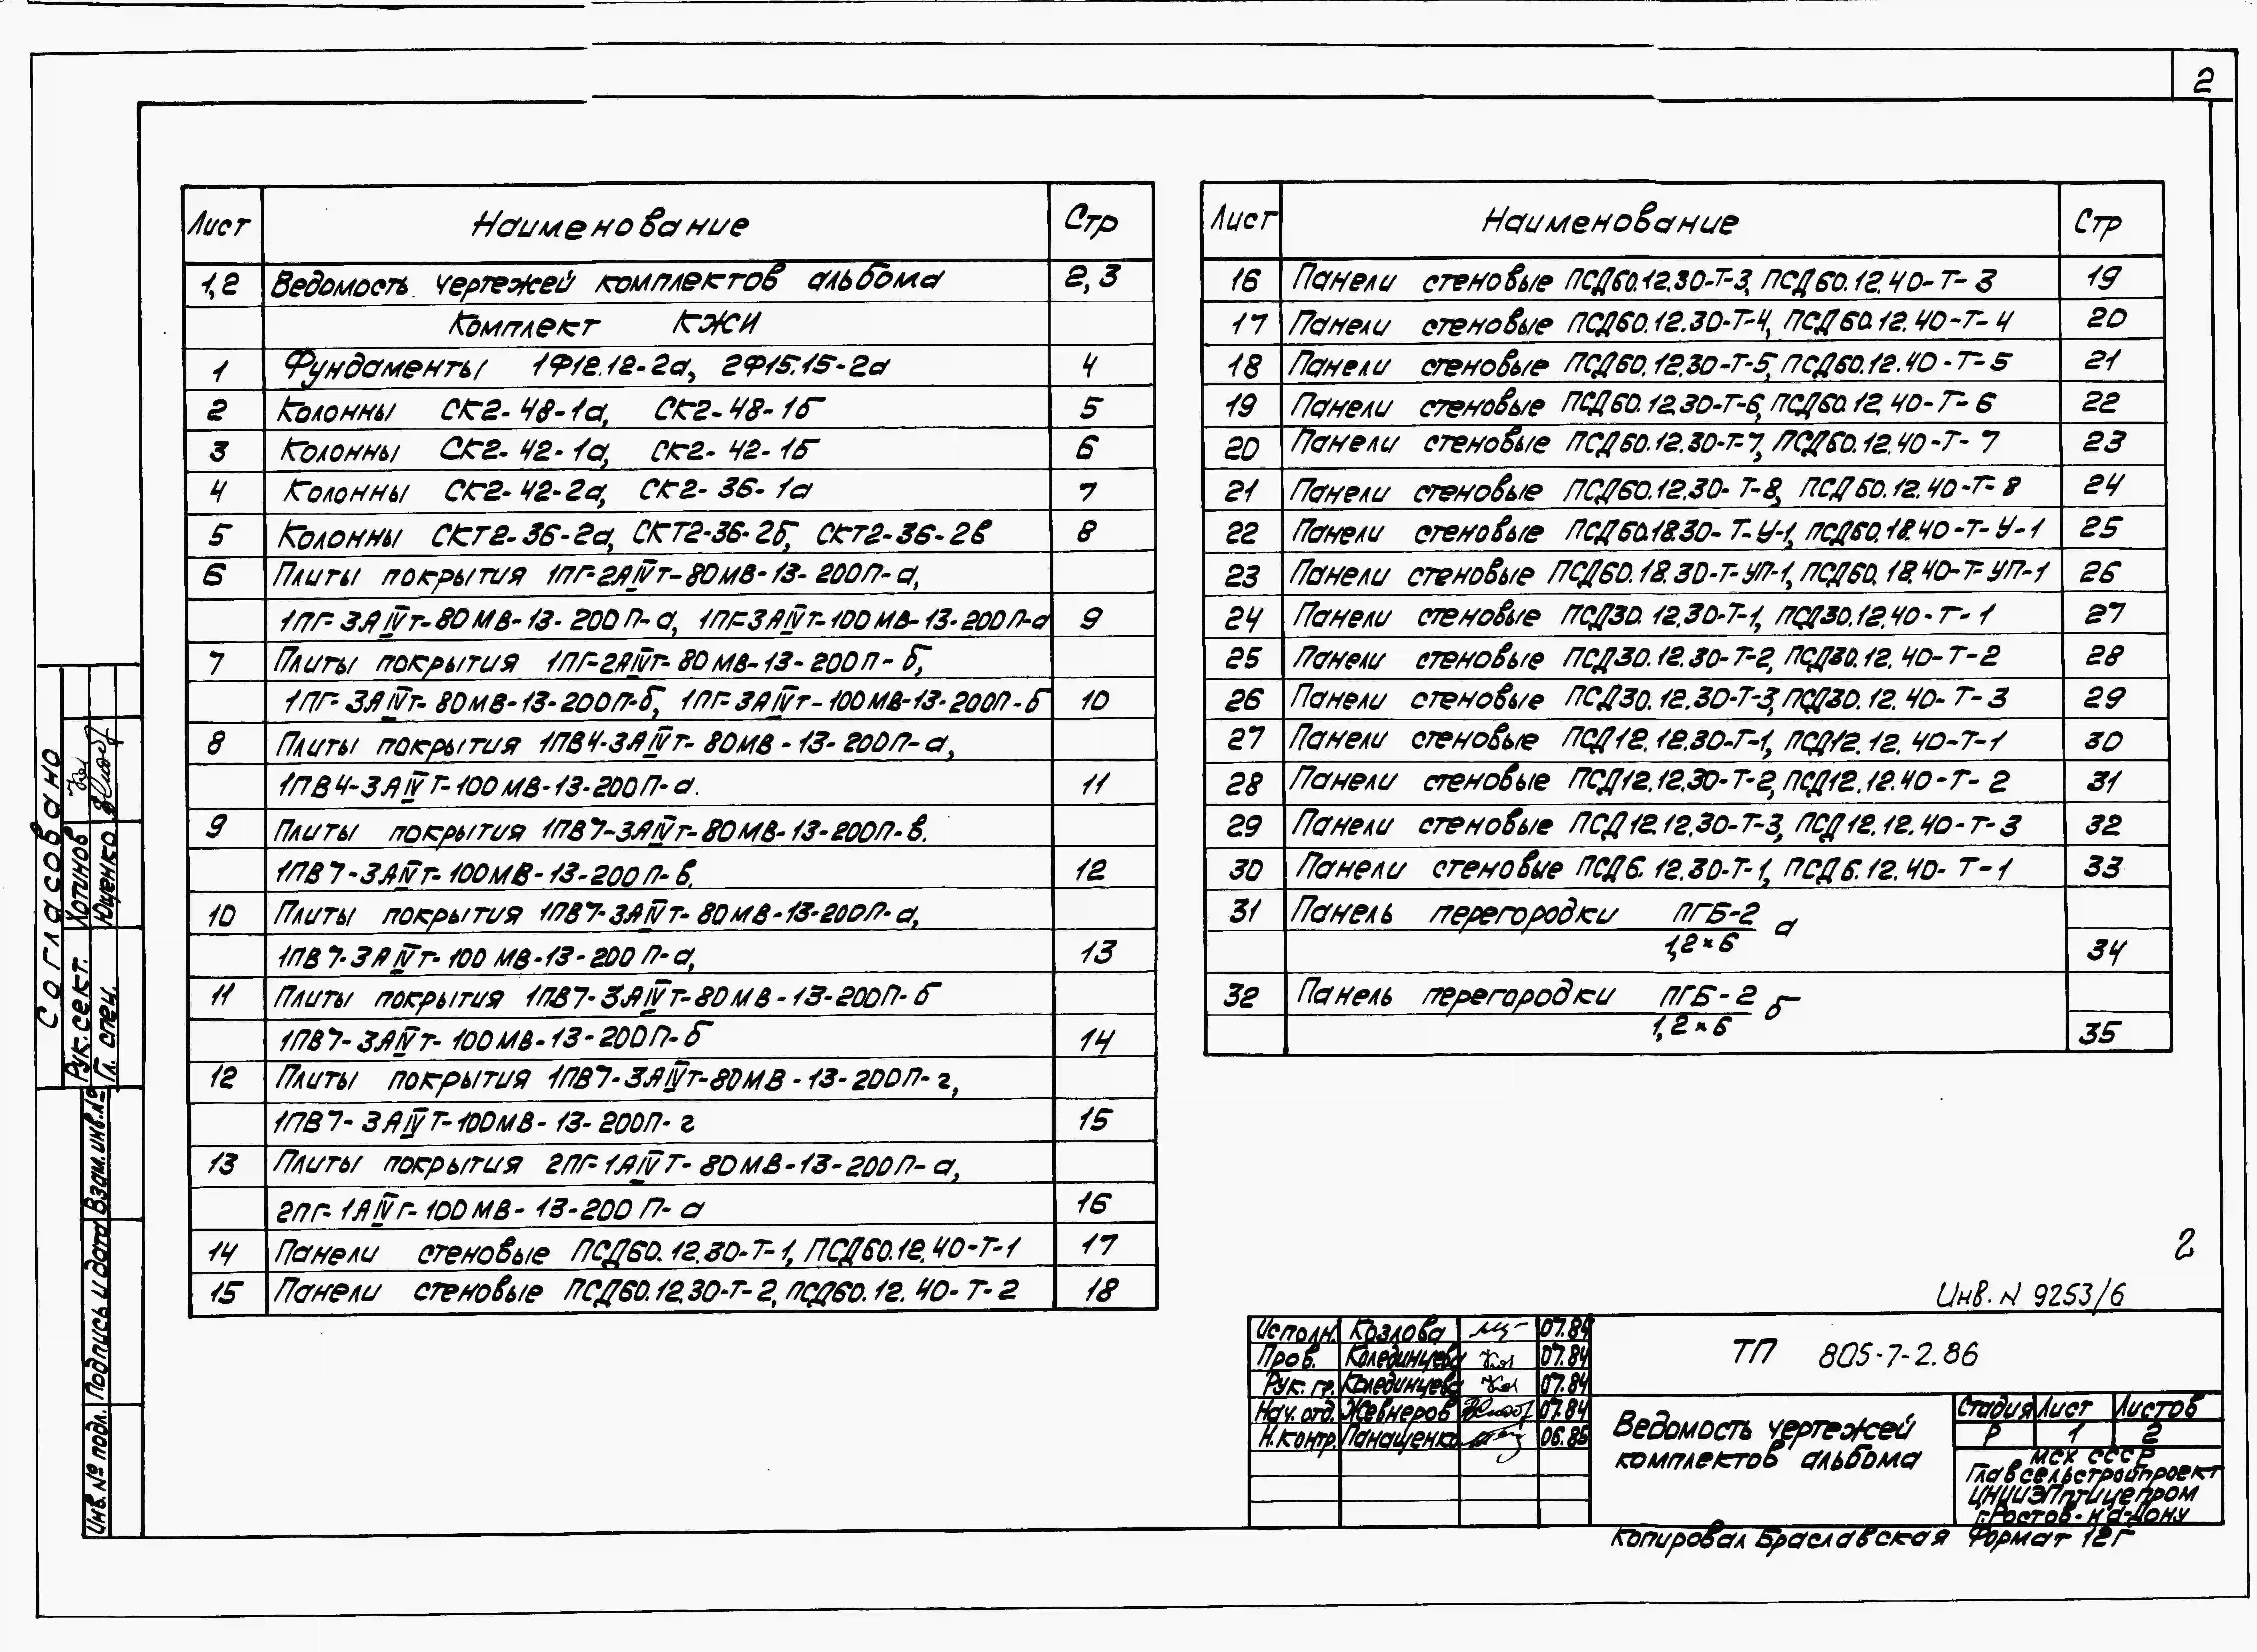 2
Лист Наименование Стр
1,2 Ведомость чертежей комплектов альбома 2,3
Комплект КЖИ
1 Фундаменты 1Ф12.12-2а, 2Ф15.15-2а 4
2 Колонны СК2-48-1а, СК2-48-1б 5
3 Колонны СК2-42-1а, СК2-42-1б 6
4 Колонны СК2-42-2а, СК2-36-1а 7
5 Колонны СКТ2-36-2а, СКТ2-36-2б, СКТ2-36-2в 8
6 Плиты покрытия 1ПГ-2АIVт-80МВ-13-200П-а,
1ПГ-3АIVт-80МВ-13-200П-а, 1ПГ-3АIVт-100МВ-13-200П-а 9
7 Плиты покрытия 1ПГ-2АIVт-80МВ-13-200П-б,
1ПГ-3АIVт-80МВ-13-200П-б, 1ПГ-3АIVт-100МВ-13-200П-б 10
8 Плиты покрытия 1ПВ4-3АIVт-80МВ-13-200П-а,
1ПВ4-3АIVт-100МВ-13-200П-а. 11
9 Плиты покрытия 1ПВ7-3АIVт-80МВ-13-200П-в.
1ПВ7-3АIVт-100МВ-13-200П-в. 12
10 Плиты покрытия 1ПВ7-3АIVт-80МВ-13-200П-а,
1ПВ7-3АIVт-100МВ-13-200П-а, 13
11 Плиты покрытия 1ПВ7-3АIVт-80МВ-13-200П-б
1ПВ7-3АIVт-100МВ-13-200П-б 14
12 Плиты покрытия 1ПВ7-3АIVт-80МВ-13-200П-г,
1ПВ7-3АIVт-100МВ-13-200П-г 15
13 Плиты покрытия 2ПГ-1АIVт-80МВ-13-200П-а,
2ПГ-1АIVт-100МВ-13-200П-а 16
14 Панели стеновые ПСД60.12.30-Т-1, ПСД60.12.40-Т-1 17
15 Панели стеновые ПСД60.12.30-Т-2, ПСД60.12.40-Т-2 18
Лист Наименование Стр
16 Панели стеновые ПСД60.12.30-Т-3, ПСД60.12.40-Т-3 19
17 Панели стеновые ПСД60.12.30-Т-4, ПСД60.12.40-Т-4 20
18 Панели стеновые ПСД60.12.30-Т-5, ПСД60.12.40-Т-5 21
19 Панели стеновые ПСД60.12.30-Т-6, ПСД60.12.40-Т-6 22
20 Панели стеновые ПСД60.12.30-Т-7, ПСД60.12.40-Т-7 23
21 Панели стеновые ПСД60.12.30-Т-8, ПСД60.12.40-Т-8 24
22 Панели стеновые ПСД60.18.30-Т-У-1, ПСД60.18.40-Т-У-1 25
23 Панели стеновые ПСД60.18.30-Т-УП-1, ПСД60.18.40-Т-УП-1 26
24 Панели стеновые ПСД30.12.30-Т-1, ПСД30.12.40-Т-1 27
25 Панели стеновые ПСД30.12.30-Т-2, ПСД30.12.40-Т-2 28
26 Панели стеновые ПСД30.12.30-Т-3, ПСД30.12.40-Т-3 29
27 Панели стеновые ПСД12.12.30-Т-1, ПСД12.12.40-Т-1 30
28 Панели стеновые ПСД12.12.30-Т-2, ПСД12.12.40-Т-2 31
29 Панели стеновые ПСД12.12.30-Т-3, ПСД12.12.40-Т-3 32
30 Панели стеновые ПСД6.12.30-Т-1, ПСД6.12.40-Т-1 33
31 Панель перегородки ПГБ-2 а
1,2×6 34
32 Панель перегородки ПГБ-2 б
1,2×6 35
Согласовано
Рук.сект. Хотинов
Гл. спец. Ющенко
Взам.инв.№
Подпись и дата
Инв.№ подл.
2
Инв. N 9253/6
Исполн. Козлова 07.84
Пров. Колединцева 07.84
Рук. гр. Колединцева 07.84
Нач. отд. Жевнеров 07.84
Н.контр. Панащенко 06.85
ТП 805-7-2.86
Ведомость чертежей
комплектов альбома
Стадия Лист Листов
Р 1 2
МСХ СССР
Главсельстройпроект
ЦНИИЭПптицепром
г.Ростов-на-Дону
Копировал Браславская Формат 12Г